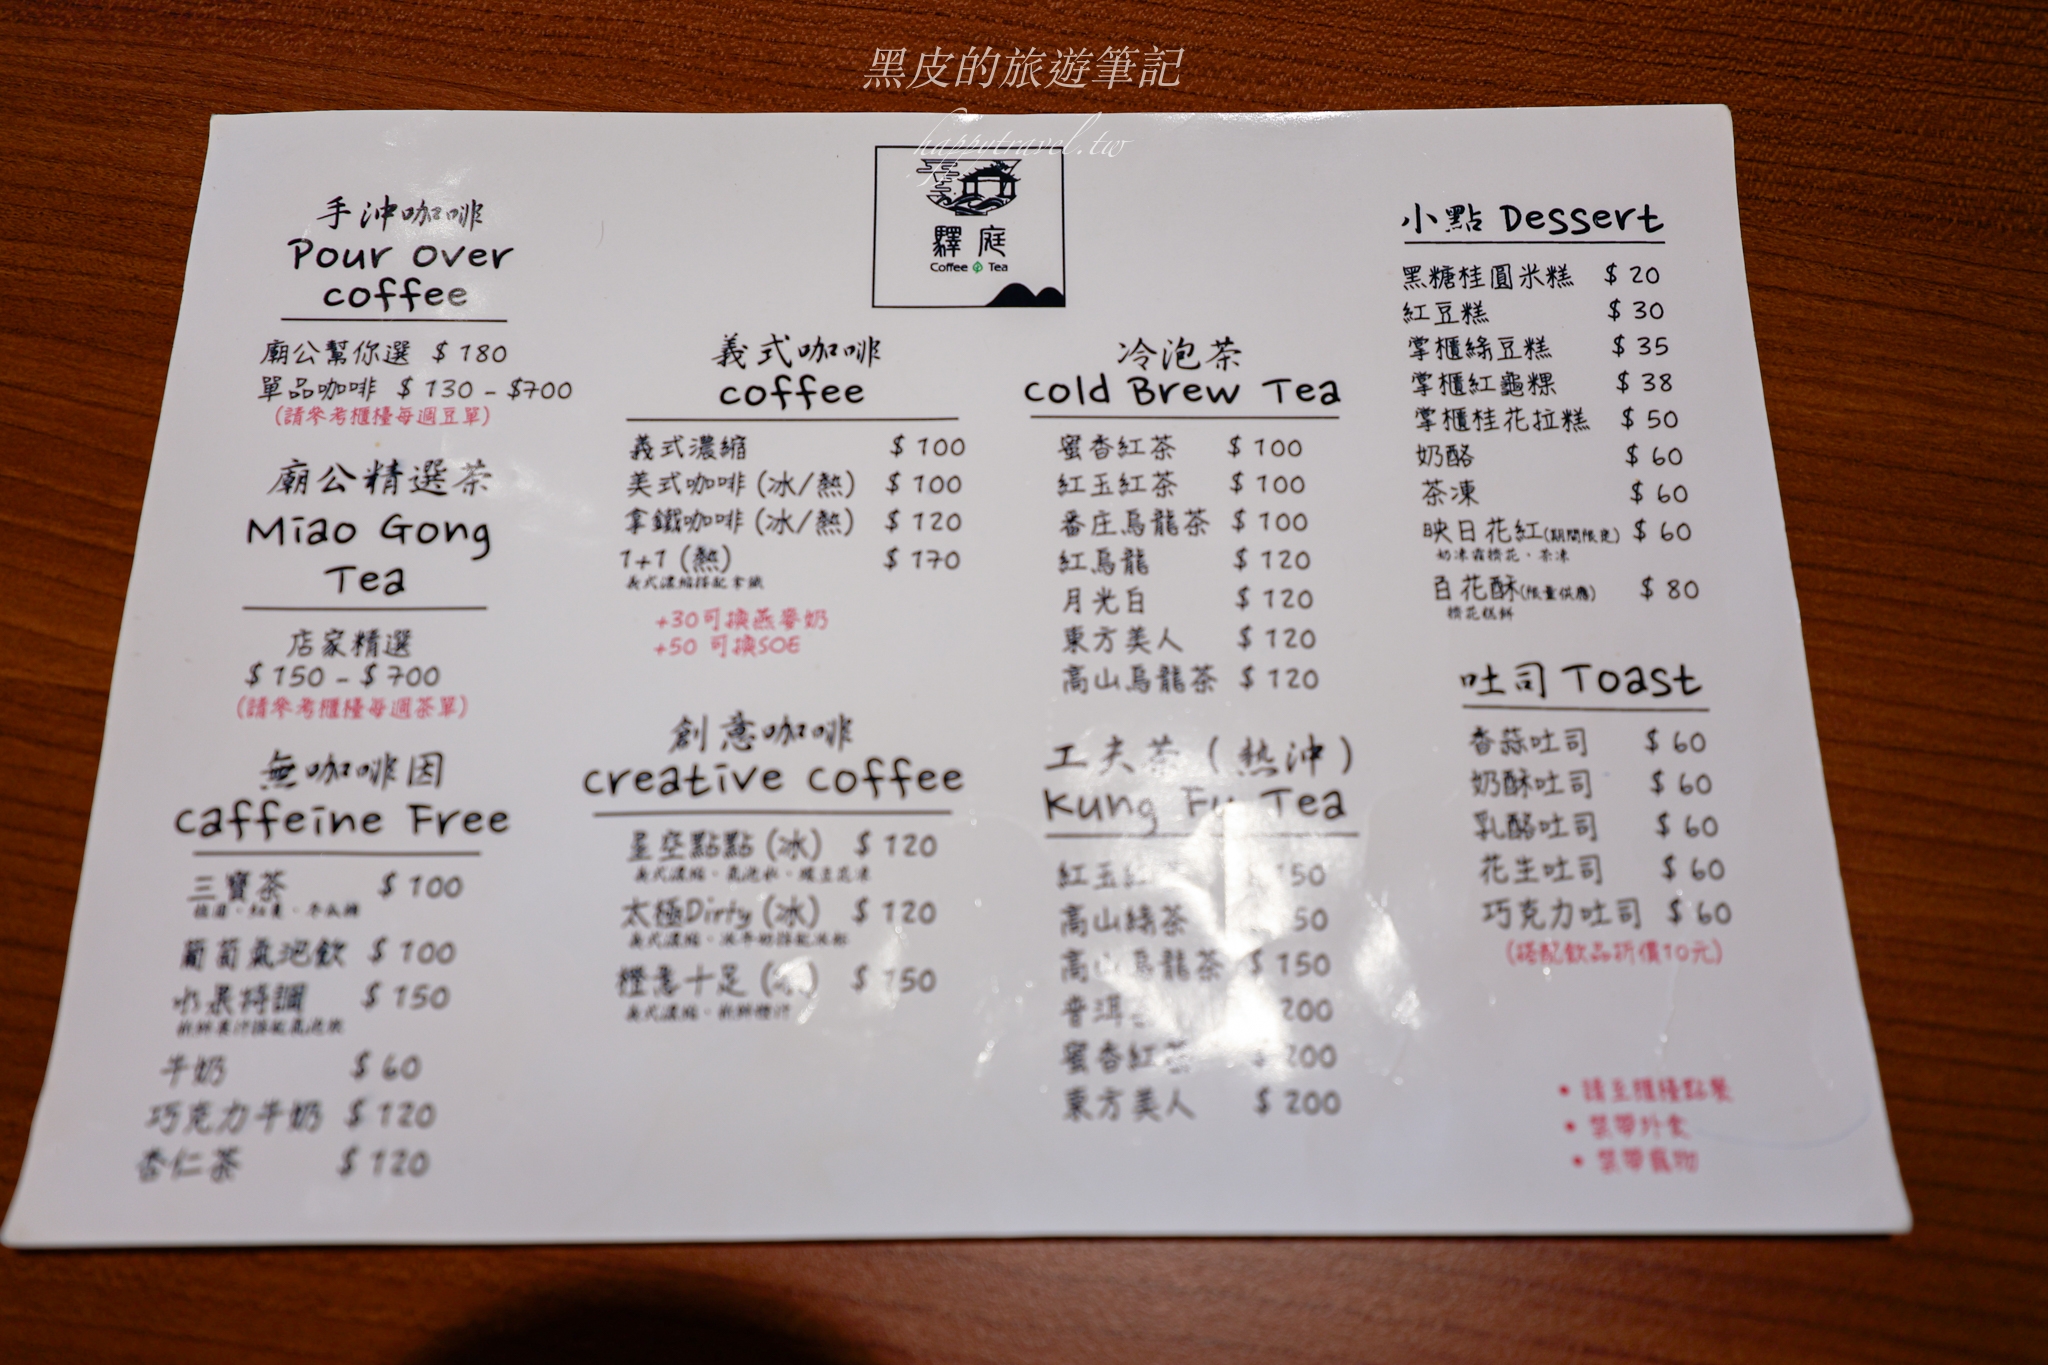 黑皮的旅遊筆記
happytravel.tw
驛庭
Coffee Tea
手沖咖啡
Pour over
coffee
廟公幫你選 $180
單品咖啡 $130-$700
(請參考櫃檯每週豆單)
廟公精選茶
Miao Gong
Tea
店家精選
$150-$700
(請參考櫃檯每週茶單)
無咖啡因
Caffeine Free
三寶茶 $100
葡萄氣泡飲 $100
水果特調 $150
新鮮果汁搭配氣泡飲
牛奶 $60
巧克力牛奶 $120
杏仁茶 $120
義式咖啡
coffee
義式濃縮 $100
美式咖啡(冰/熱) $100
拿鐵咖啡(冰/熱) $120
1+1(熱) $170
義式濃縮搭配拿鐵
+30可換燕麥奶
+50 可換SOE
創意咖啡
Creative Coffee
星空點點(冰) $120
太極Dirty(冰) $120
橙意十足 $150
義式濃縮、新鮮橙汁
冷泡茶
Cold Brew Tea
蜜香紅茶 $100
紅玉紅茶 $100
番庄烏龍茶 $100
紅烏龍 $120
月光白 $120
東方美人 $120
高山烏龍茶 $120
工夫茶(熱沖)
Kung Fu Tea
紅玉紅 150
高山綠茶 50
高山烏龍茶 $150
普洱 200
蜜香紅茶 $200
東方美人 $200
小點 Dessert
黑糖桂圓米糕 $20
紅豆糕 $30
掌櫃綠豆糕 $35
掌櫃紅龜粿 $38
掌櫃桂花拉糕 $50
奶酪 $60
茶凍 $60
映日花紅(期間限定) $60
百花酥(限量供應) $80
吐司 Toast
香蒜吐司 $60
奶酥吐司 $60
乳酪吐司 $60
花生吐司 $60
巧克力吐司 $60
(搭配飲品折價10元)
• 請至櫃檯點餐
• 禁帶外食
• 禁帶寵物